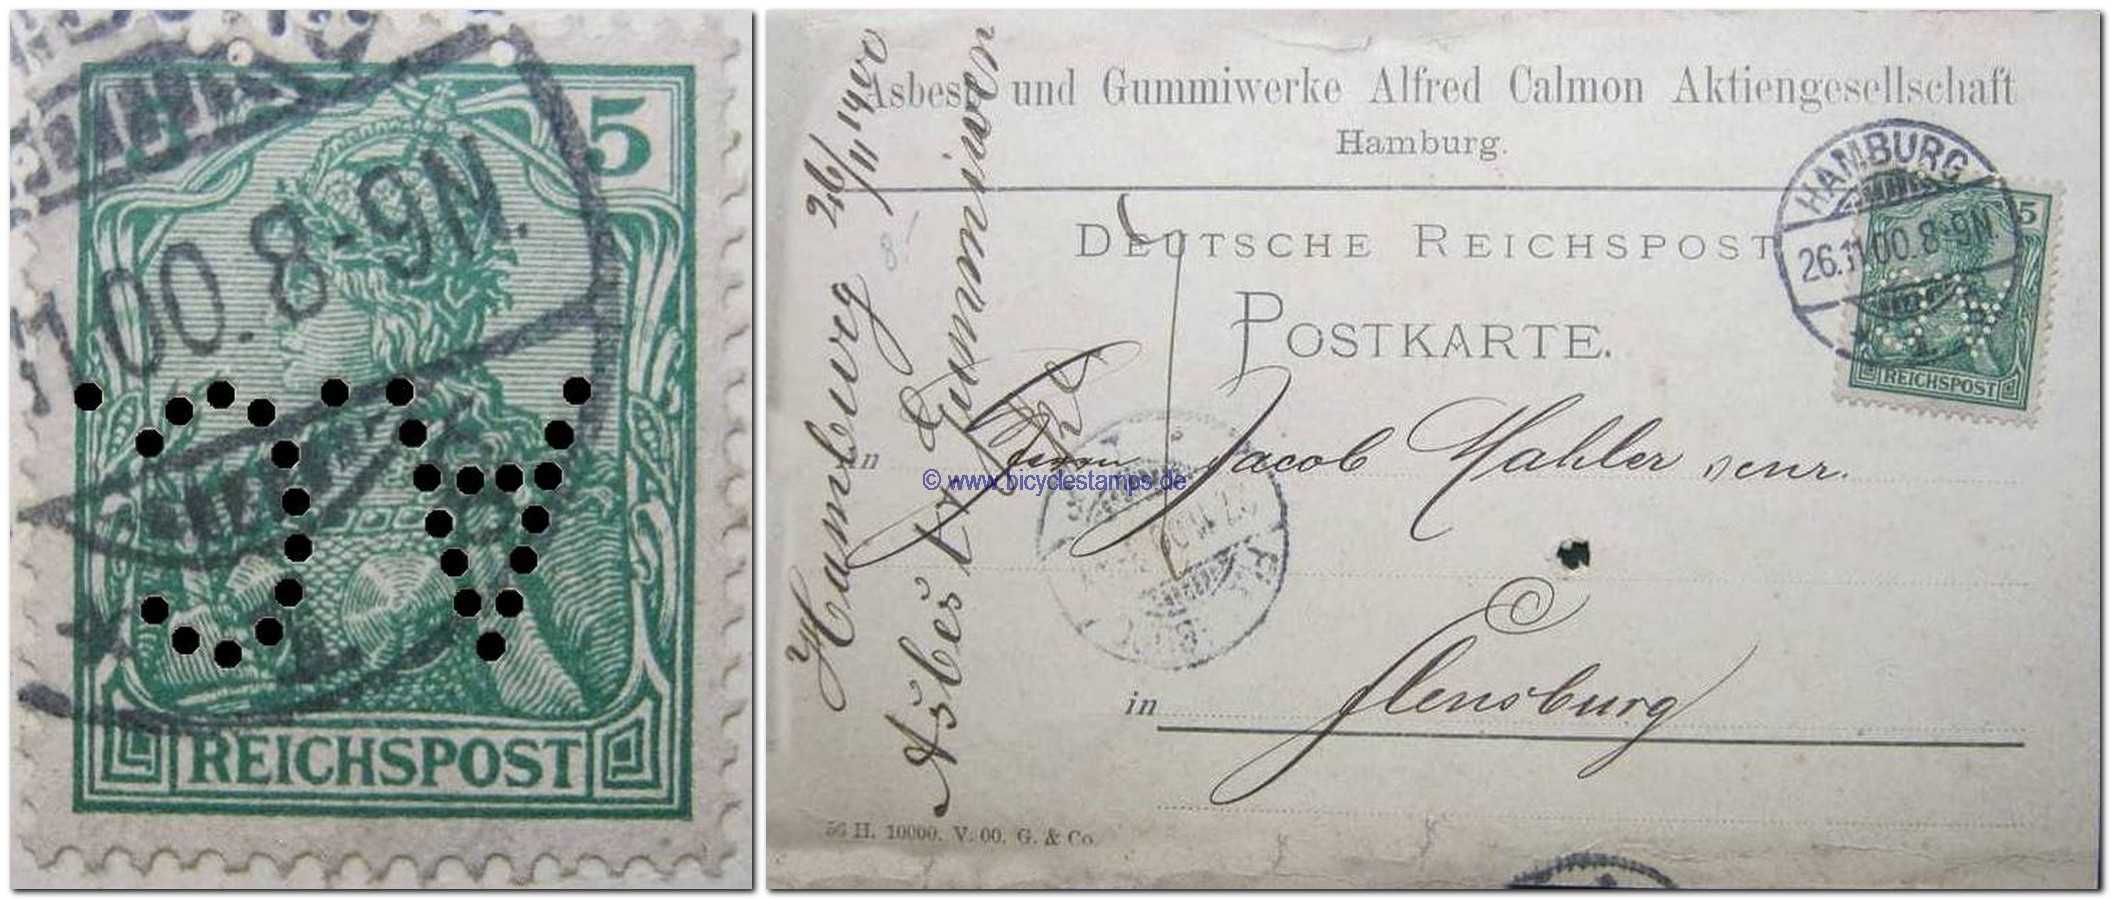 5
00.8-9N.
REICHSPOST
Asbest- und Gummiwerke Alfred Calmon Aktiengesellschaft
Hamburg.
DEUTSCHE REICHSPOST
POSTKARTE.
HAMBURG
26.11.00.8-9N.
5
REICHSPOST
Hamburg 26/11 1900
Asbest & Gummiwen
© www.bicyclestamps.de
in
Herrn Jacob Mahler senr.
in Flensburg
56 H. 10000. V. 00. G. & Co.